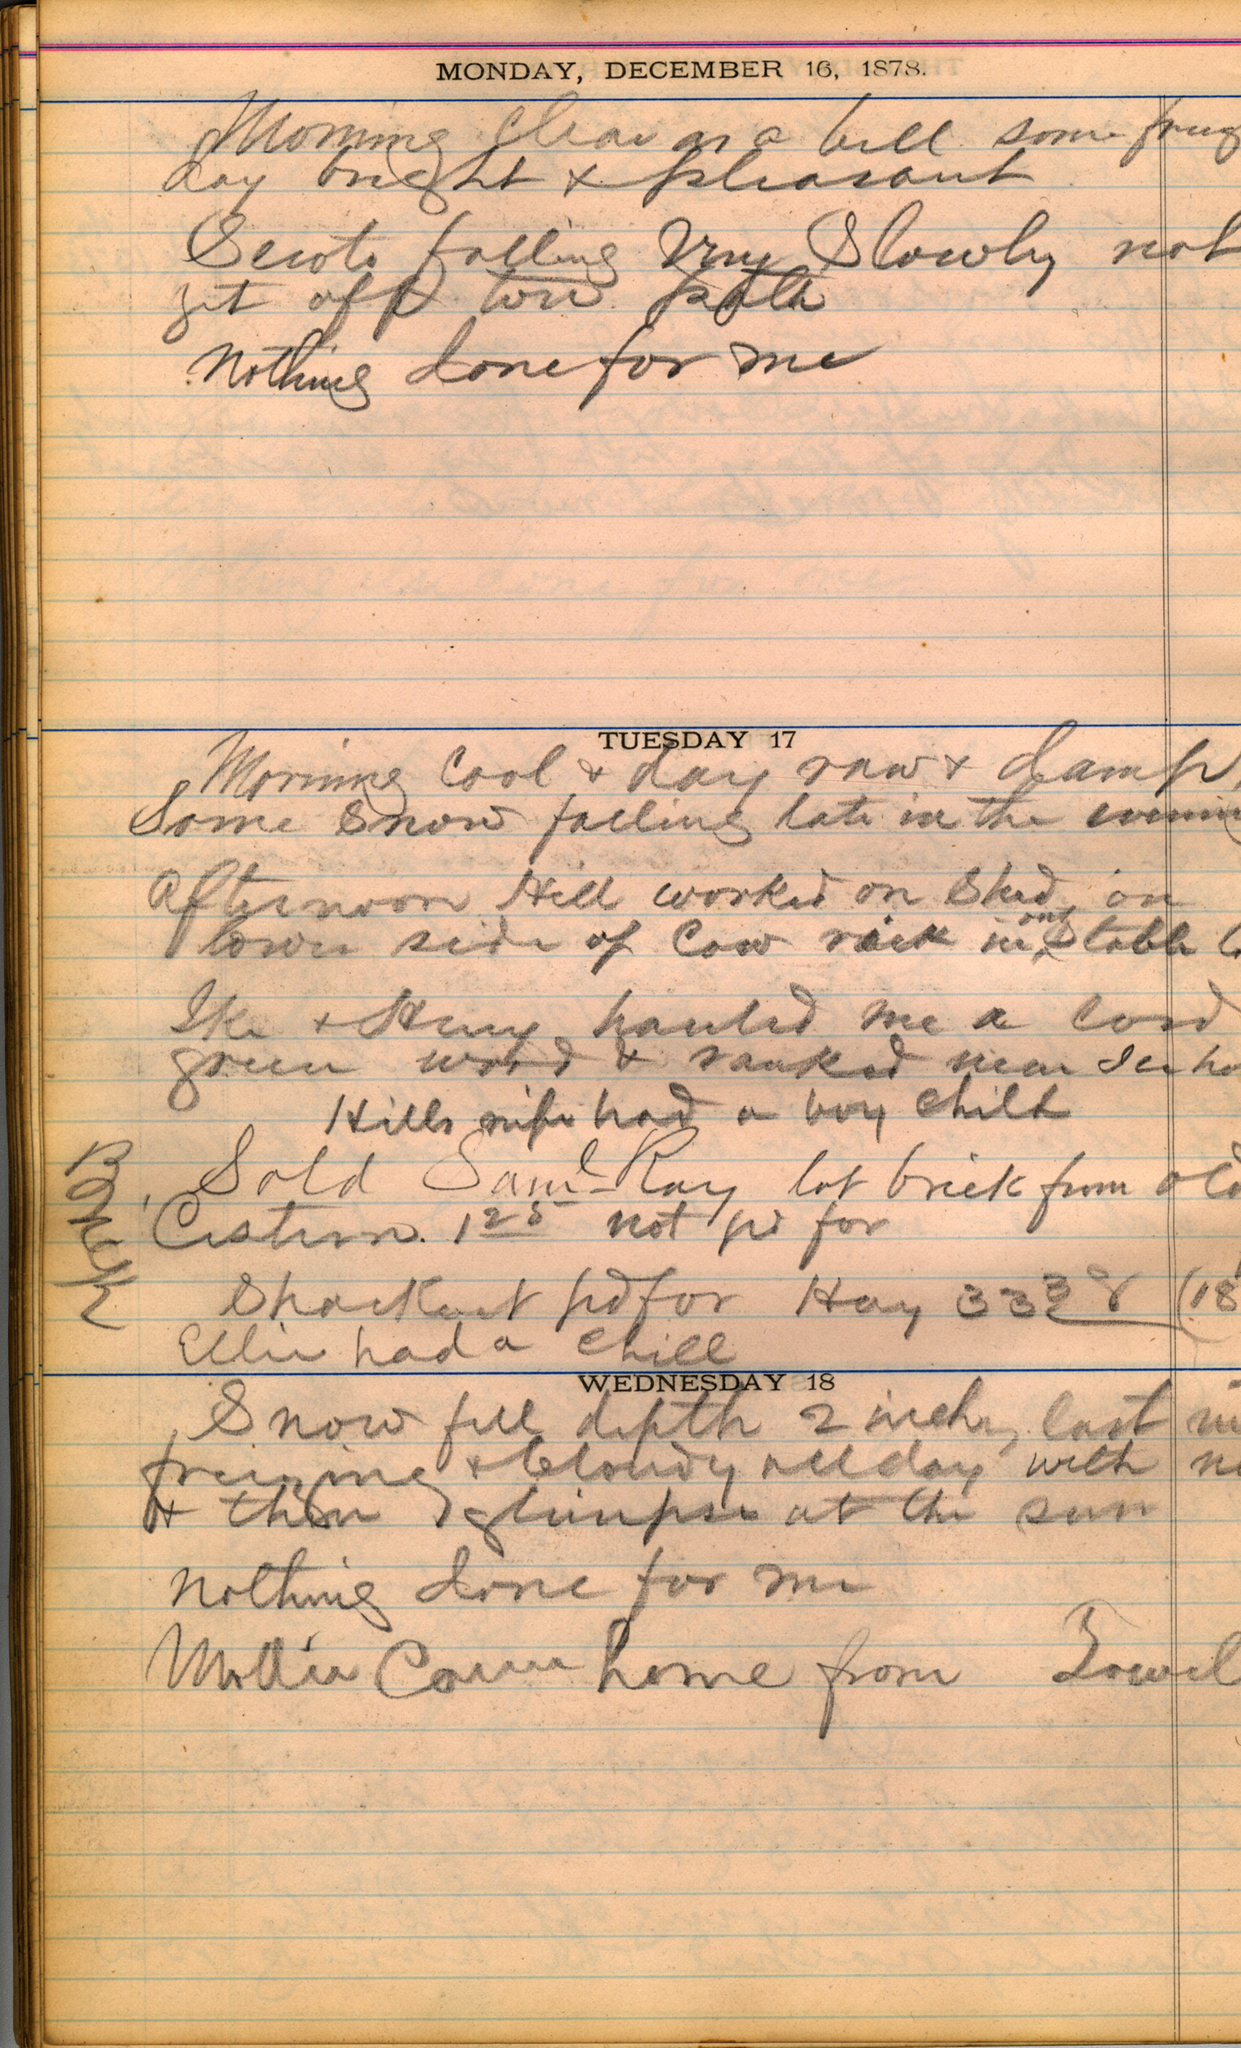 MONDAY, DECEMBER 16, 1878.
Morning Clear as a bell some
day bright & pleasant
Scioto falling Very Slowly not
yet off tow path
Nothing done for me
TUESDAY 17
Morning Cool & day raw & damp,
Some Snow falling late in the evening
Afternoon Hill worked on Shed, on
lower side of Cow rack in
Ike & Henry hauled me a Cord
green wood & ranked near
Hills wife had a boy child
Brick
Sold Saml Ray lot brick from old
Cistern. 1 25 not pd for
pd for Hay 33 38 (18
Ellie had a Chill
WEDNESDAY 18
Snow fell depth 2 inches, last
freezing & Cloudy all day with
& then glimpse at the sun
Nothing done for me
Mollie Came home from